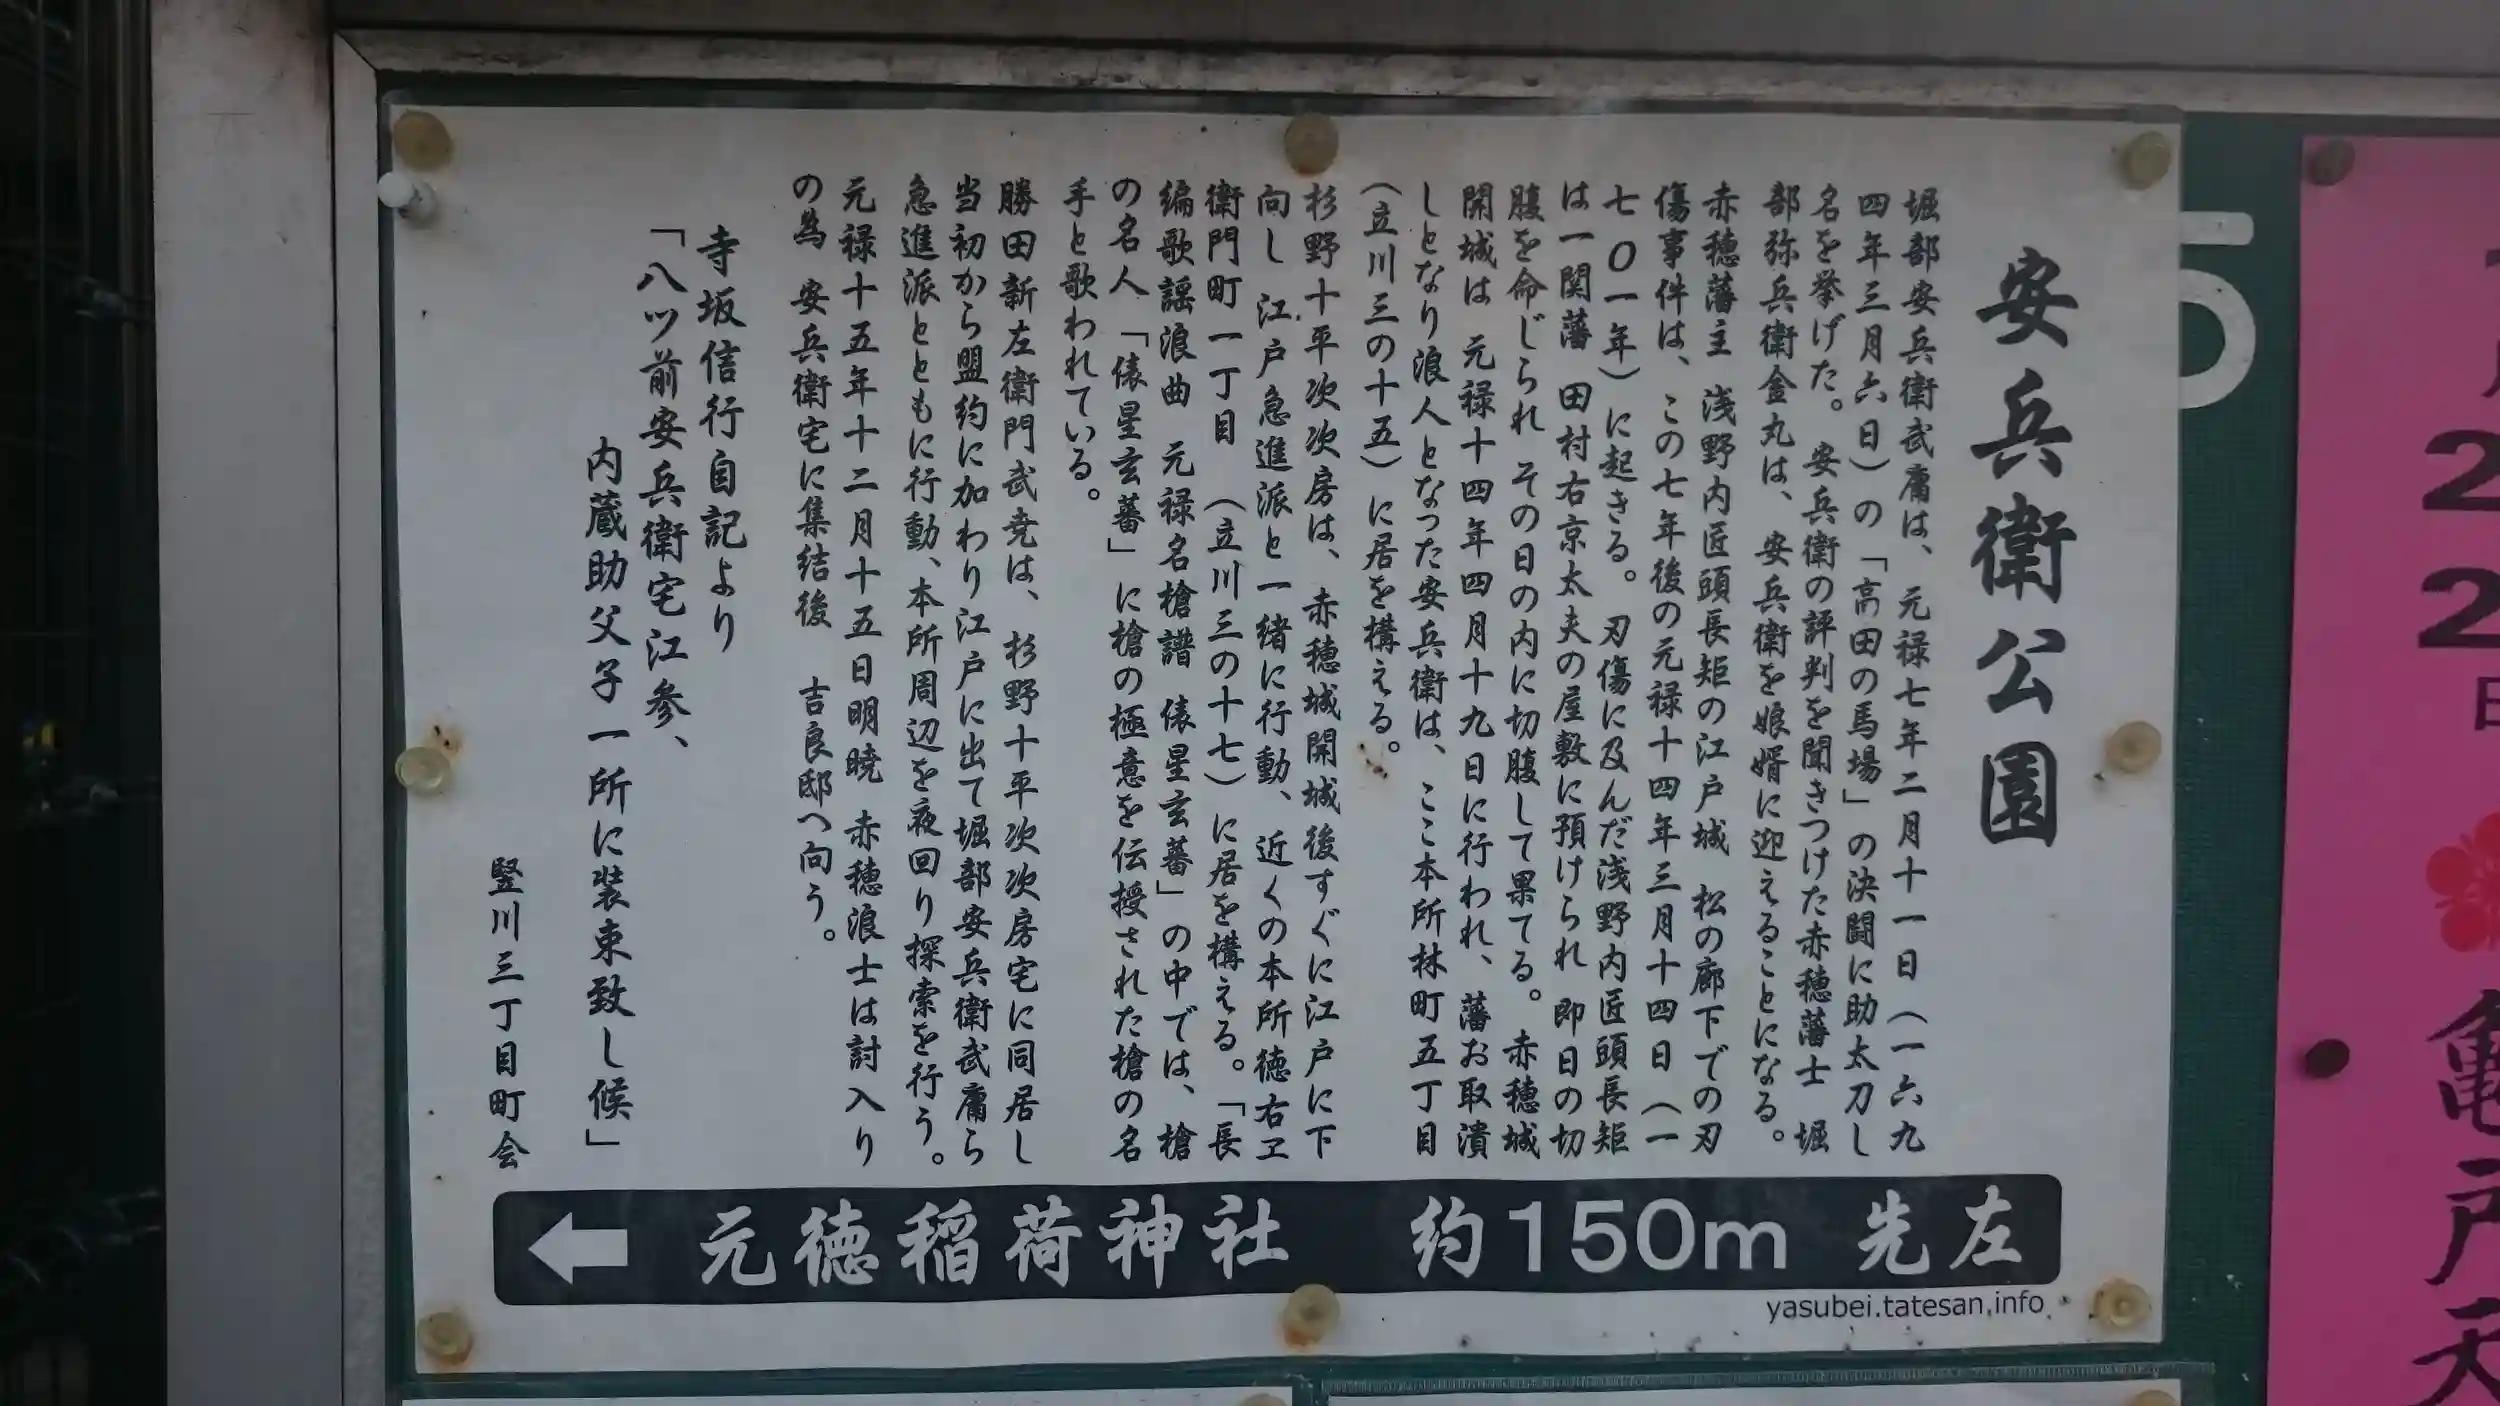 安兵衛公園
堀部安兵衛武庸は、元禄七年二月十一日（一六九
四年三月六日）の「高田の馬場」の決闘に助太刀し
名を挙げた。安兵衛の評判を聞きつけた赤穂藩士 堀
部弥兵衛金丸は、安兵衛を娘婿に迎えることになる。
赤穂藩主 浅野内匠頭長矩の江戸城 松の廊下での刃
傷事件は、この七年後の元禄十四年三月十四日（一
七〇一年）に起きる。刃傷に及んだ浅野内匠頭長矩
は一関藩 田村右京太夫の屋敷に預けられ 即日の切
腹を命じられ その日の内に切腹して果てる。赤穂城
開城は 元禄十四年四月十九日に行われ、藩お取潰
しとなり浪人となった安兵衛は、ここ本所林町五丁目
（立川三の十五）に居を構える。
杉野十平次次房は、赤穂城開城後すぐに江戸に下
向し 江戸急進派と一緒に行動、近くの本所徳右ヱ
衛門町一丁目 （立川三の十七）に居を構える。「長
編歌謡浪曲 元禄名槍譜 俵星玄蕃」の中では、槍
の名人「俵星玄蕃」に槍の極意を伝授された槍の名
手と歌われている。
勝田新左衛門武尭は、杉野十平次次房宅に同居し
当初から盟約に加わり江戸に出て堀部安兵衛武庸ら
急進派とともに行動、本所周辺を夜回り探索を行う。
元禄十五年十二月十五日明暁 赤穂浪士は討入り
の為 安兵衛宅に集結後 吉良邸へ向う。
寺坂信行自記より
「八ツ前安兵衛宅江参、
内蔵助父子一所に装束致し候」
竪川三丁目町会
元徳稲荷神社 約150m 先左
yasubei.tatesan.info
5
22
日
亀戸天